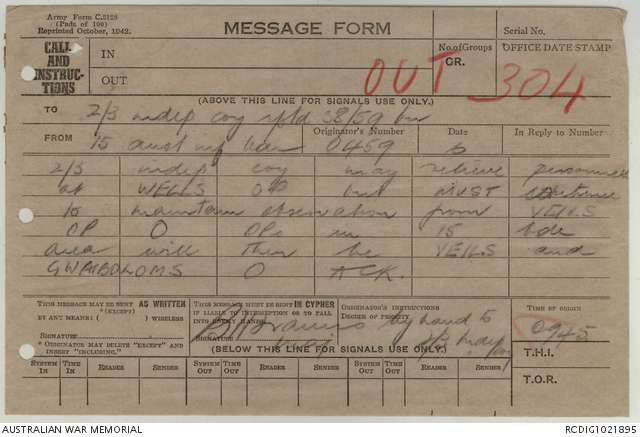 Army Form C.2128
(Pads of 100)
Reprinted October, 1942.
MESSAGE FORM
Serial No.
CALL AND INSTRUCTIONS
IN
OUT
No. of Groups
GR.
OFFICE DATE STAMP
OUT 304
(ABOVE THIS LINE FOR SIGNALS USE ONLY.)
TO 2/3 indep coy rptd 58/59 bn
FROM 15 aust inf bde
Originator's Number 0459
Date 6
In Reply to Number
2/3 indep coy may relieve personnel
at WELLS OP but MUST continue
to maintain observation from
OP O OPs in 15 bde
area will then be and
O ACK.
THIS MESSAGE MAY BE SENT AS WRITTEN
(EXCEPT)
BY ANY MEANS: ( ) WIRELESS
SIGNATURE
* ORIGINATOR MAY DELETE "EXCEPT" AND
INSERT "INCLUDING."
THIS MESSAGE MUST BE SENT IN CYPHER
IF LIABLE TO INTERCEPTION OR TO FALL
INTO ENEMY HANDS.
SIGNATURE
ORIGINATOR'S INSTRUCTIONS
DEGREE OF PRIORITY
by hand to
2/3 Indep Coy
TIME OF ORIGIN
0945
T.H.I.
T.O.R.
(BELOW THIS LINE FOR SIGNALS USE ONLY.)
SYSTEM IN TIME IN READER SENDER SYSTEM OUT TIME OUT READER SENDER SYSTEM OUT TIME OUT READER SENDER
AUSTRALIAN WAR MEMORIAL
RCDIG1021895